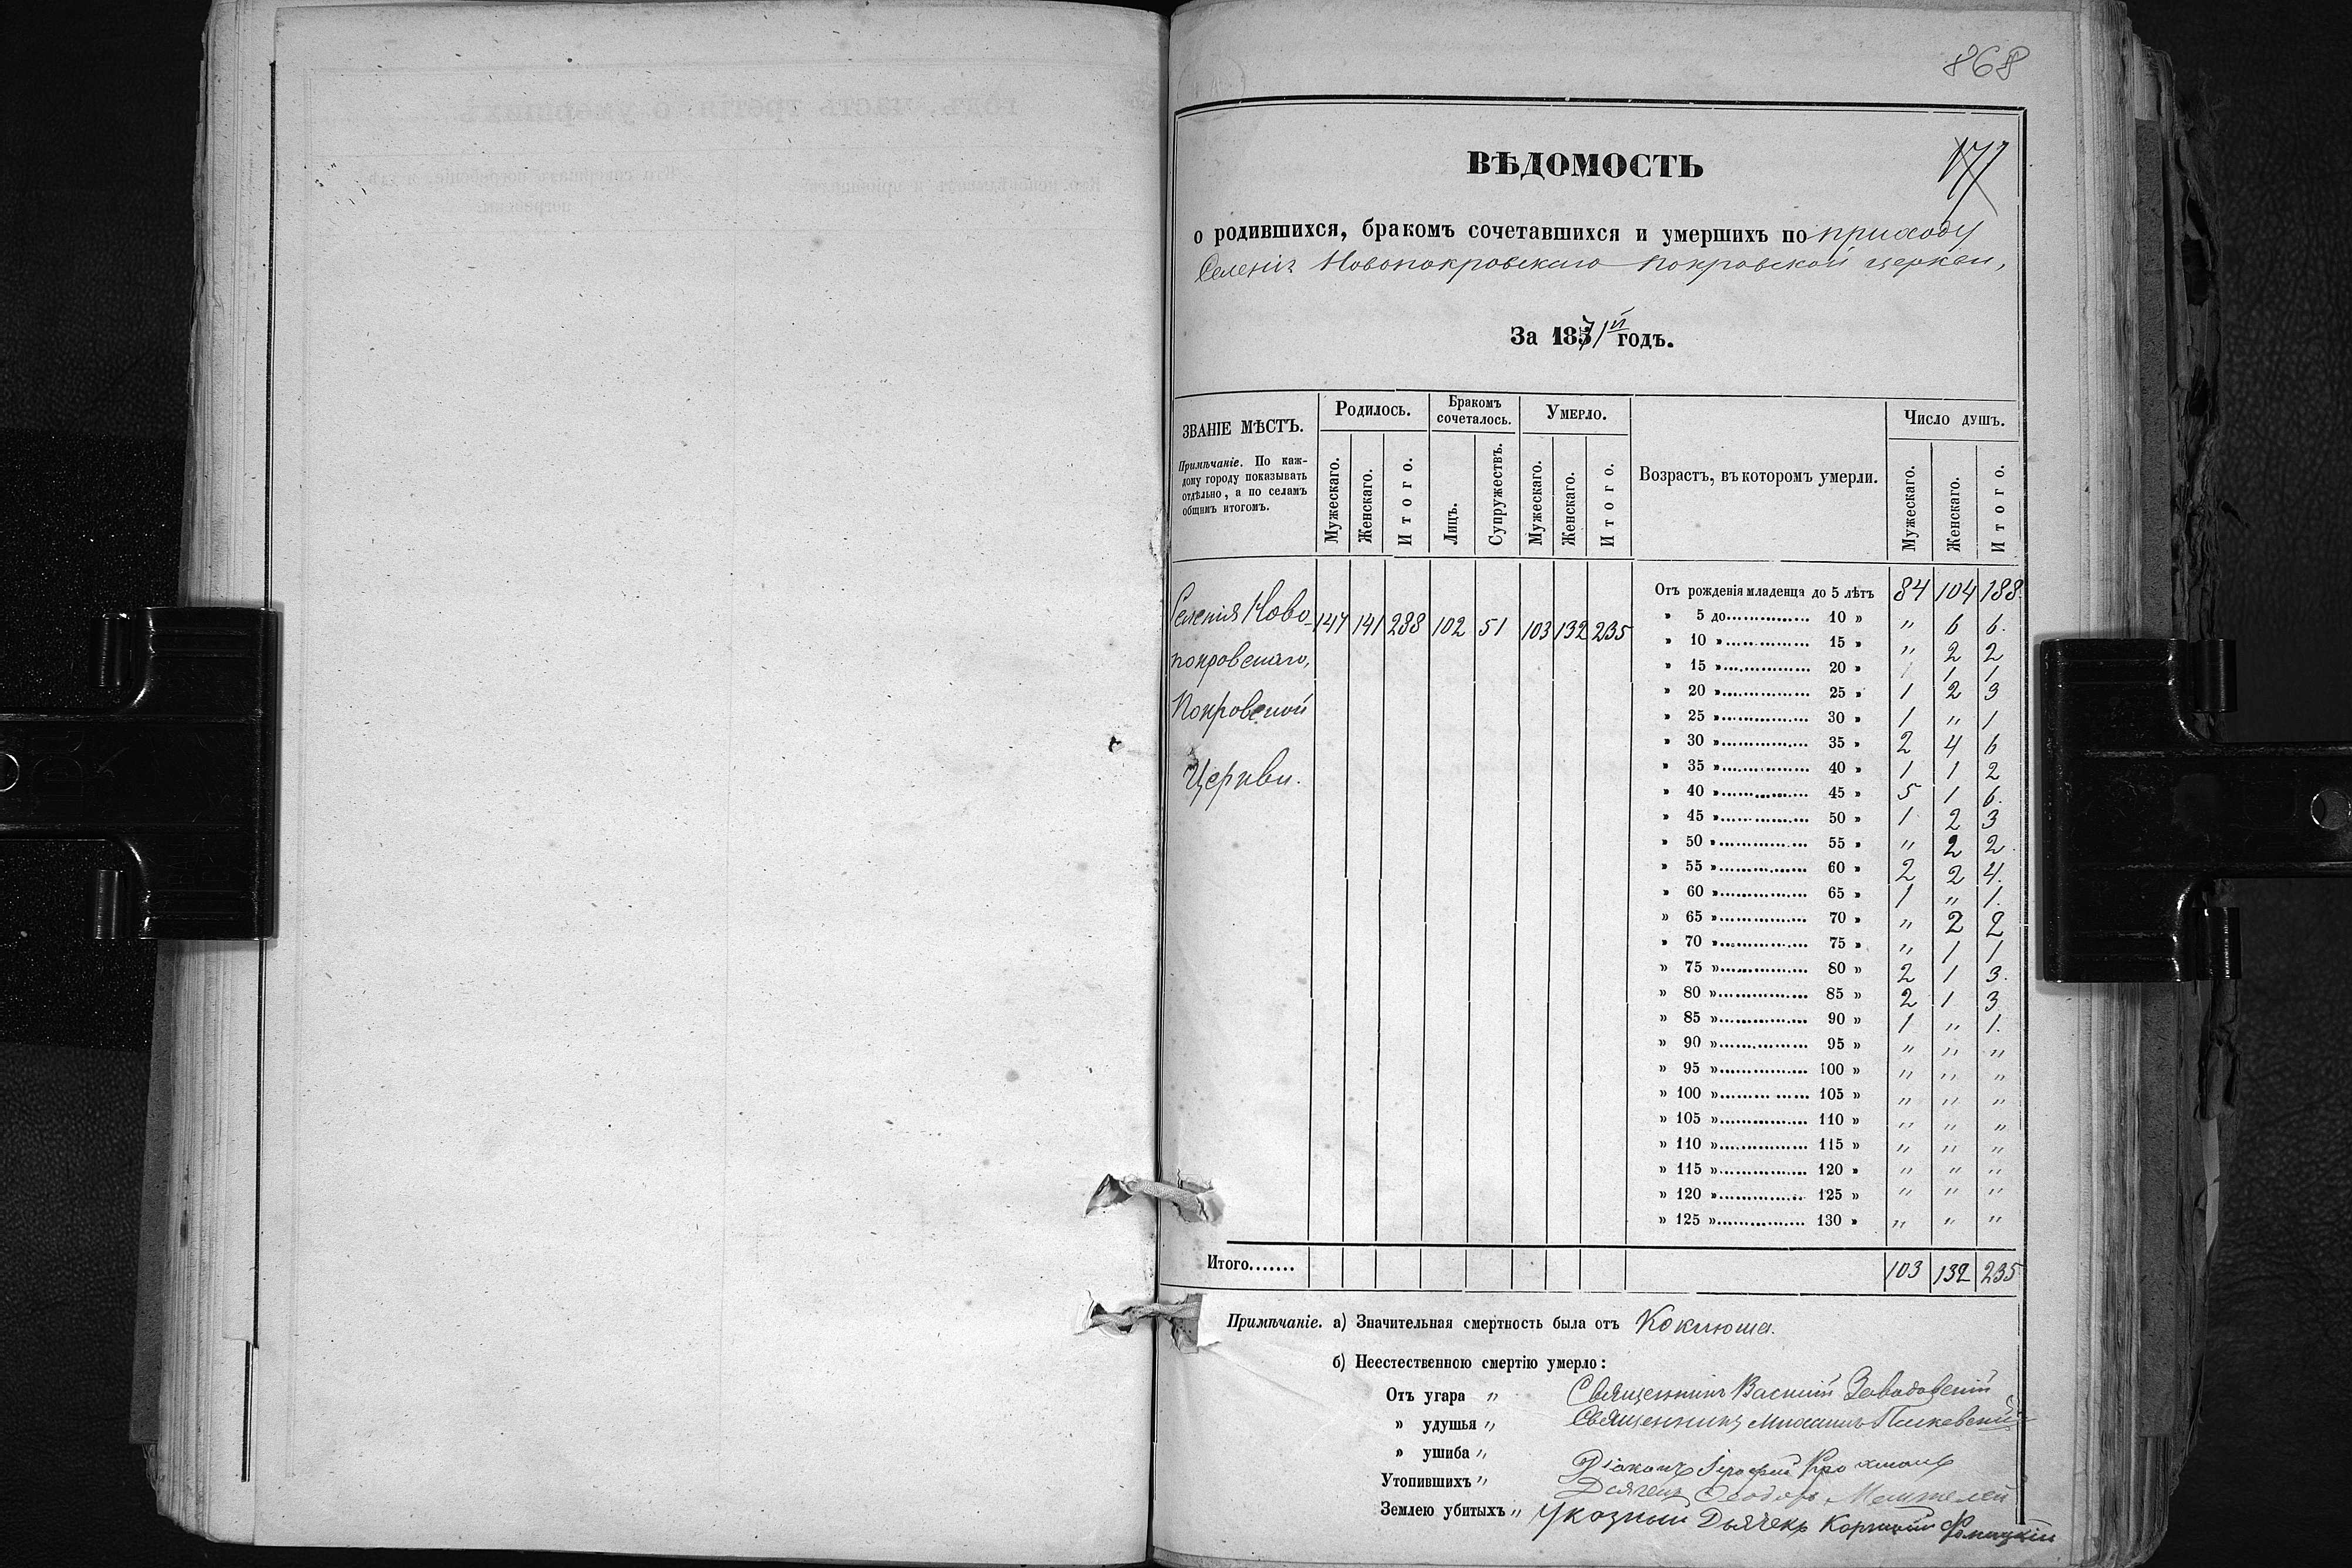 868
ВѢДОМОСТЬ
о родившихся, бракомъ сочетавшихся и умершихъ по приходу
Селенія Новопокровскаго Покровской церкви,
За 1871й годъ.
ЗВАНІЕ МѢСТЪ.
Примѣчаніе. По каж-
дому городу показывать
отдѣльно, а по селамъ
общимъ итогомъ.
Родилось.
Бракомъ
сочеталось.
Умерло.
Возрастъ, въ которомъ умерли.
Число душъ.
Мужескаго. Женскаго. Итого. Лицъ. Супружествъ. Мужескаго. Женскаго. Итого. Мужескаго. Женскаго. Итого.
Селенія Ново-
покровскаго,
Покровской
Церкви.
147 141 288 102 51 103 132 235
Отъ рожденія младенца до 5 лѣтъ 84 104 188.
» 5 до............... 10 » " 6 6.
» 10 »............... 15 » " 2 2
» 15 »............... 20 » 1 1
» 20 »............... 25 » 1 2 3
» 25 »............... 30 » 1 " 1
» 30 »............... 35 » 2 4 6
» 35 »............... 40 » 1 1 2
» 40 »............... 45 » 5 1 6.
» 45 »............... 50 » 1 2 3
» 50 »............... 55 » " 2 2.
» 55 »............... 60 » 2 2 4.
» 60 »............... 65 » 1 " 1.
» 65 »............... 70 » " 2 2
» 70 »............... 75 » " 1 1
» 75 »............... 80 » 2 1 3.
» 80 »............... 85 » 2 1 3
» 85 »............... 90 » 1 " 1.
» 90 »............... 95 » " " "
» 95 »............... 100 » " " "
» 100 »............... 105 » " " "
» 105 »............... 110 » " " "
» 110 »............... 115 » " " "
» 115 »............... 120 » " " "
» 120 »............... 125 » " " "
» 125 »............... 130 » " " "
Итого....... 103 132 235
Примѣчаніе. а) Значительная смертность была отъ Коклюша.
б) Неестественною смертію умерло:
Отъ угара " Священникъ Василій Завадовскій
» удушья " Священникъ Михаилъ
» ушиба "
Діаконъ
Утопившихъ "
Дьячекъ Ѳеодоръ
Землею убитыхъ " Указный Дьячекъ